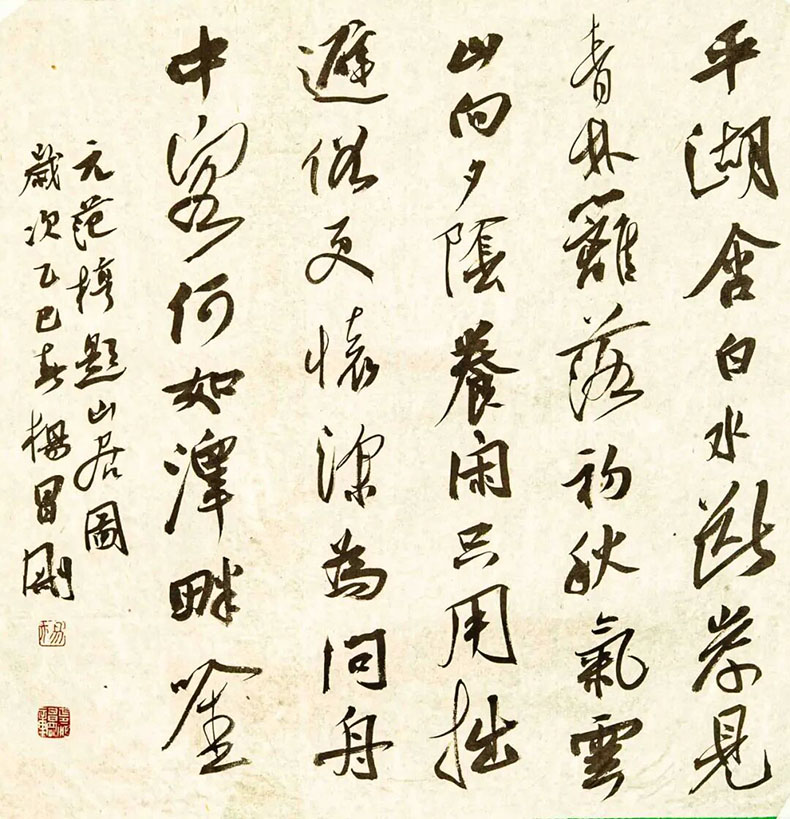 平湖含白水断岸見
青林籬落初秋氣雲
山向夕陰養闲只用拙
避俗更懷深為問舟
中客何如澤畔唫
元范梈題山居圖
歲次乙巳春楊昌剛